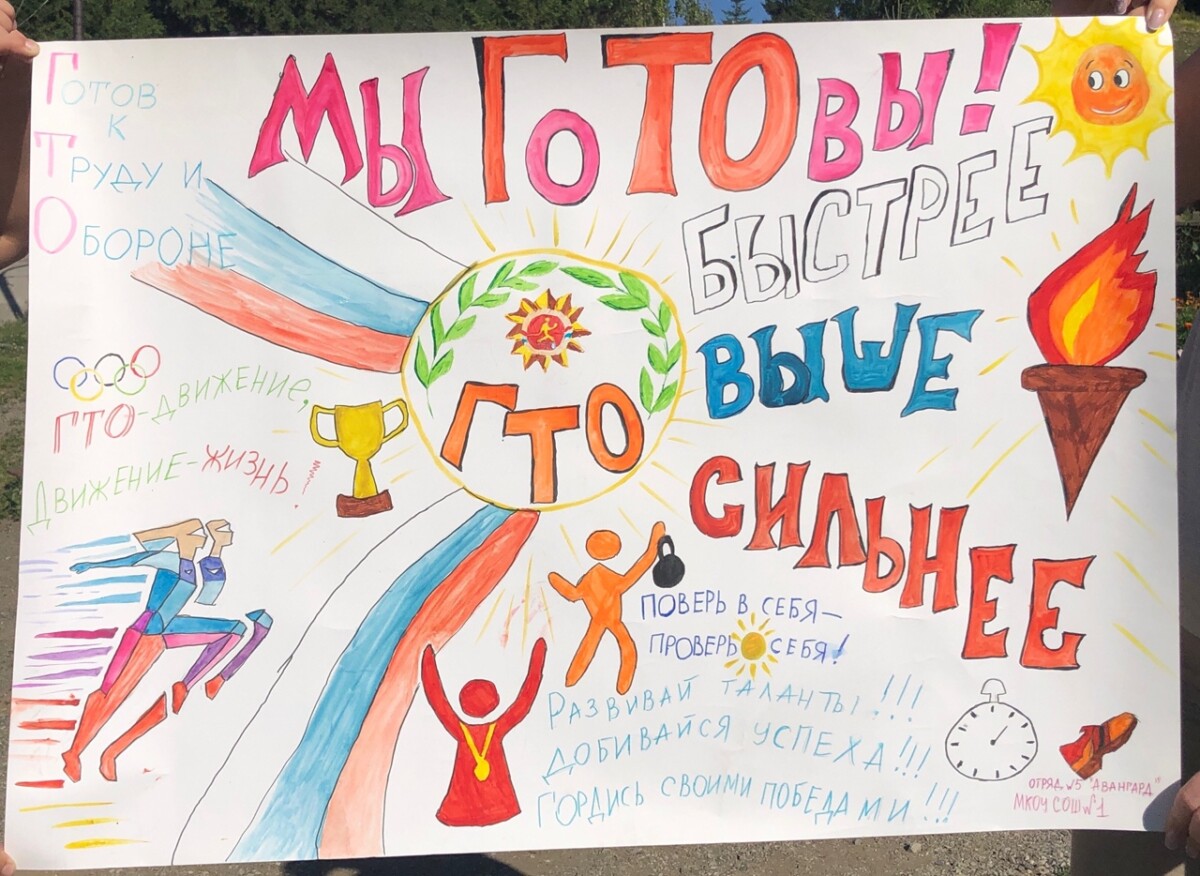 Мы ГоТОвы!
Готов
к
Труду и
Обороне
БЫСТРЕЕ
ВЫШЕ
СИЛЬНЕЕ
ГТО
ГТО-движение,
Движение-жизнь!
Поверь в себя-
проверь себя!
Развивай таланты!!!
добивайся успеха!!!
Гордись своими победами!!!
Отряд №5 "Авангард"
МКОУ СОШ №1